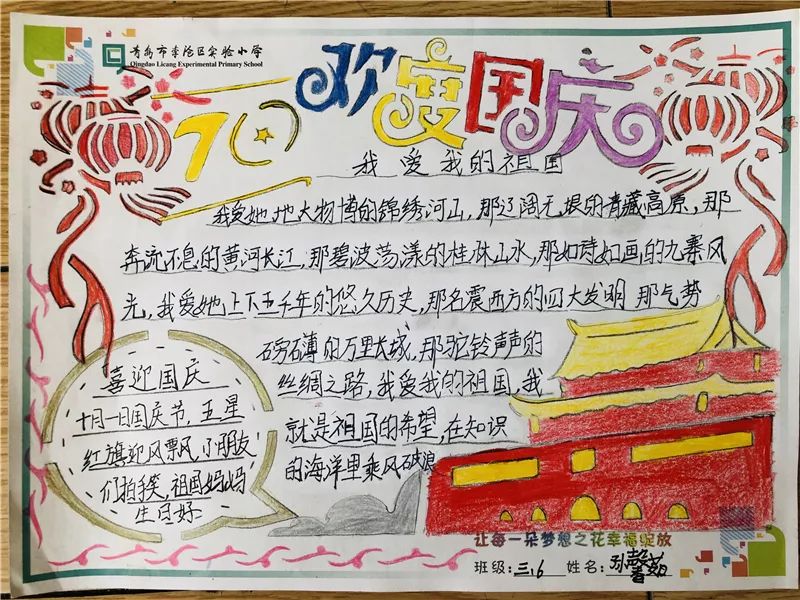 青岛市李沧区实验小学
Qingdao Licang Experimental Primary School
70
欢度国庆
我爱我的祖国
我爱她地大物博的锦绣河山,那辽阔无垠的青藏高原,那
奔流不息的黄河长江,那碧波荡漾的桂林山水,那如诗如画的九寨风
光,我爱她上下五千年的悠久历史,那名震西方的四大发明 那气势
磅礴的万里长城,那驼铃声声的
丝绸之路,我爱我的祖国,我
就是祖国的希望,在知识
的海洋里乘风破浪
喜迎国庆
十月一日国庆节,五星
红旗迎风飘,小朋友
们拍手笑,祖国妈妈
生日好
让每一朵梦想之花幸福绽放
班级:三.6 姓名:孙